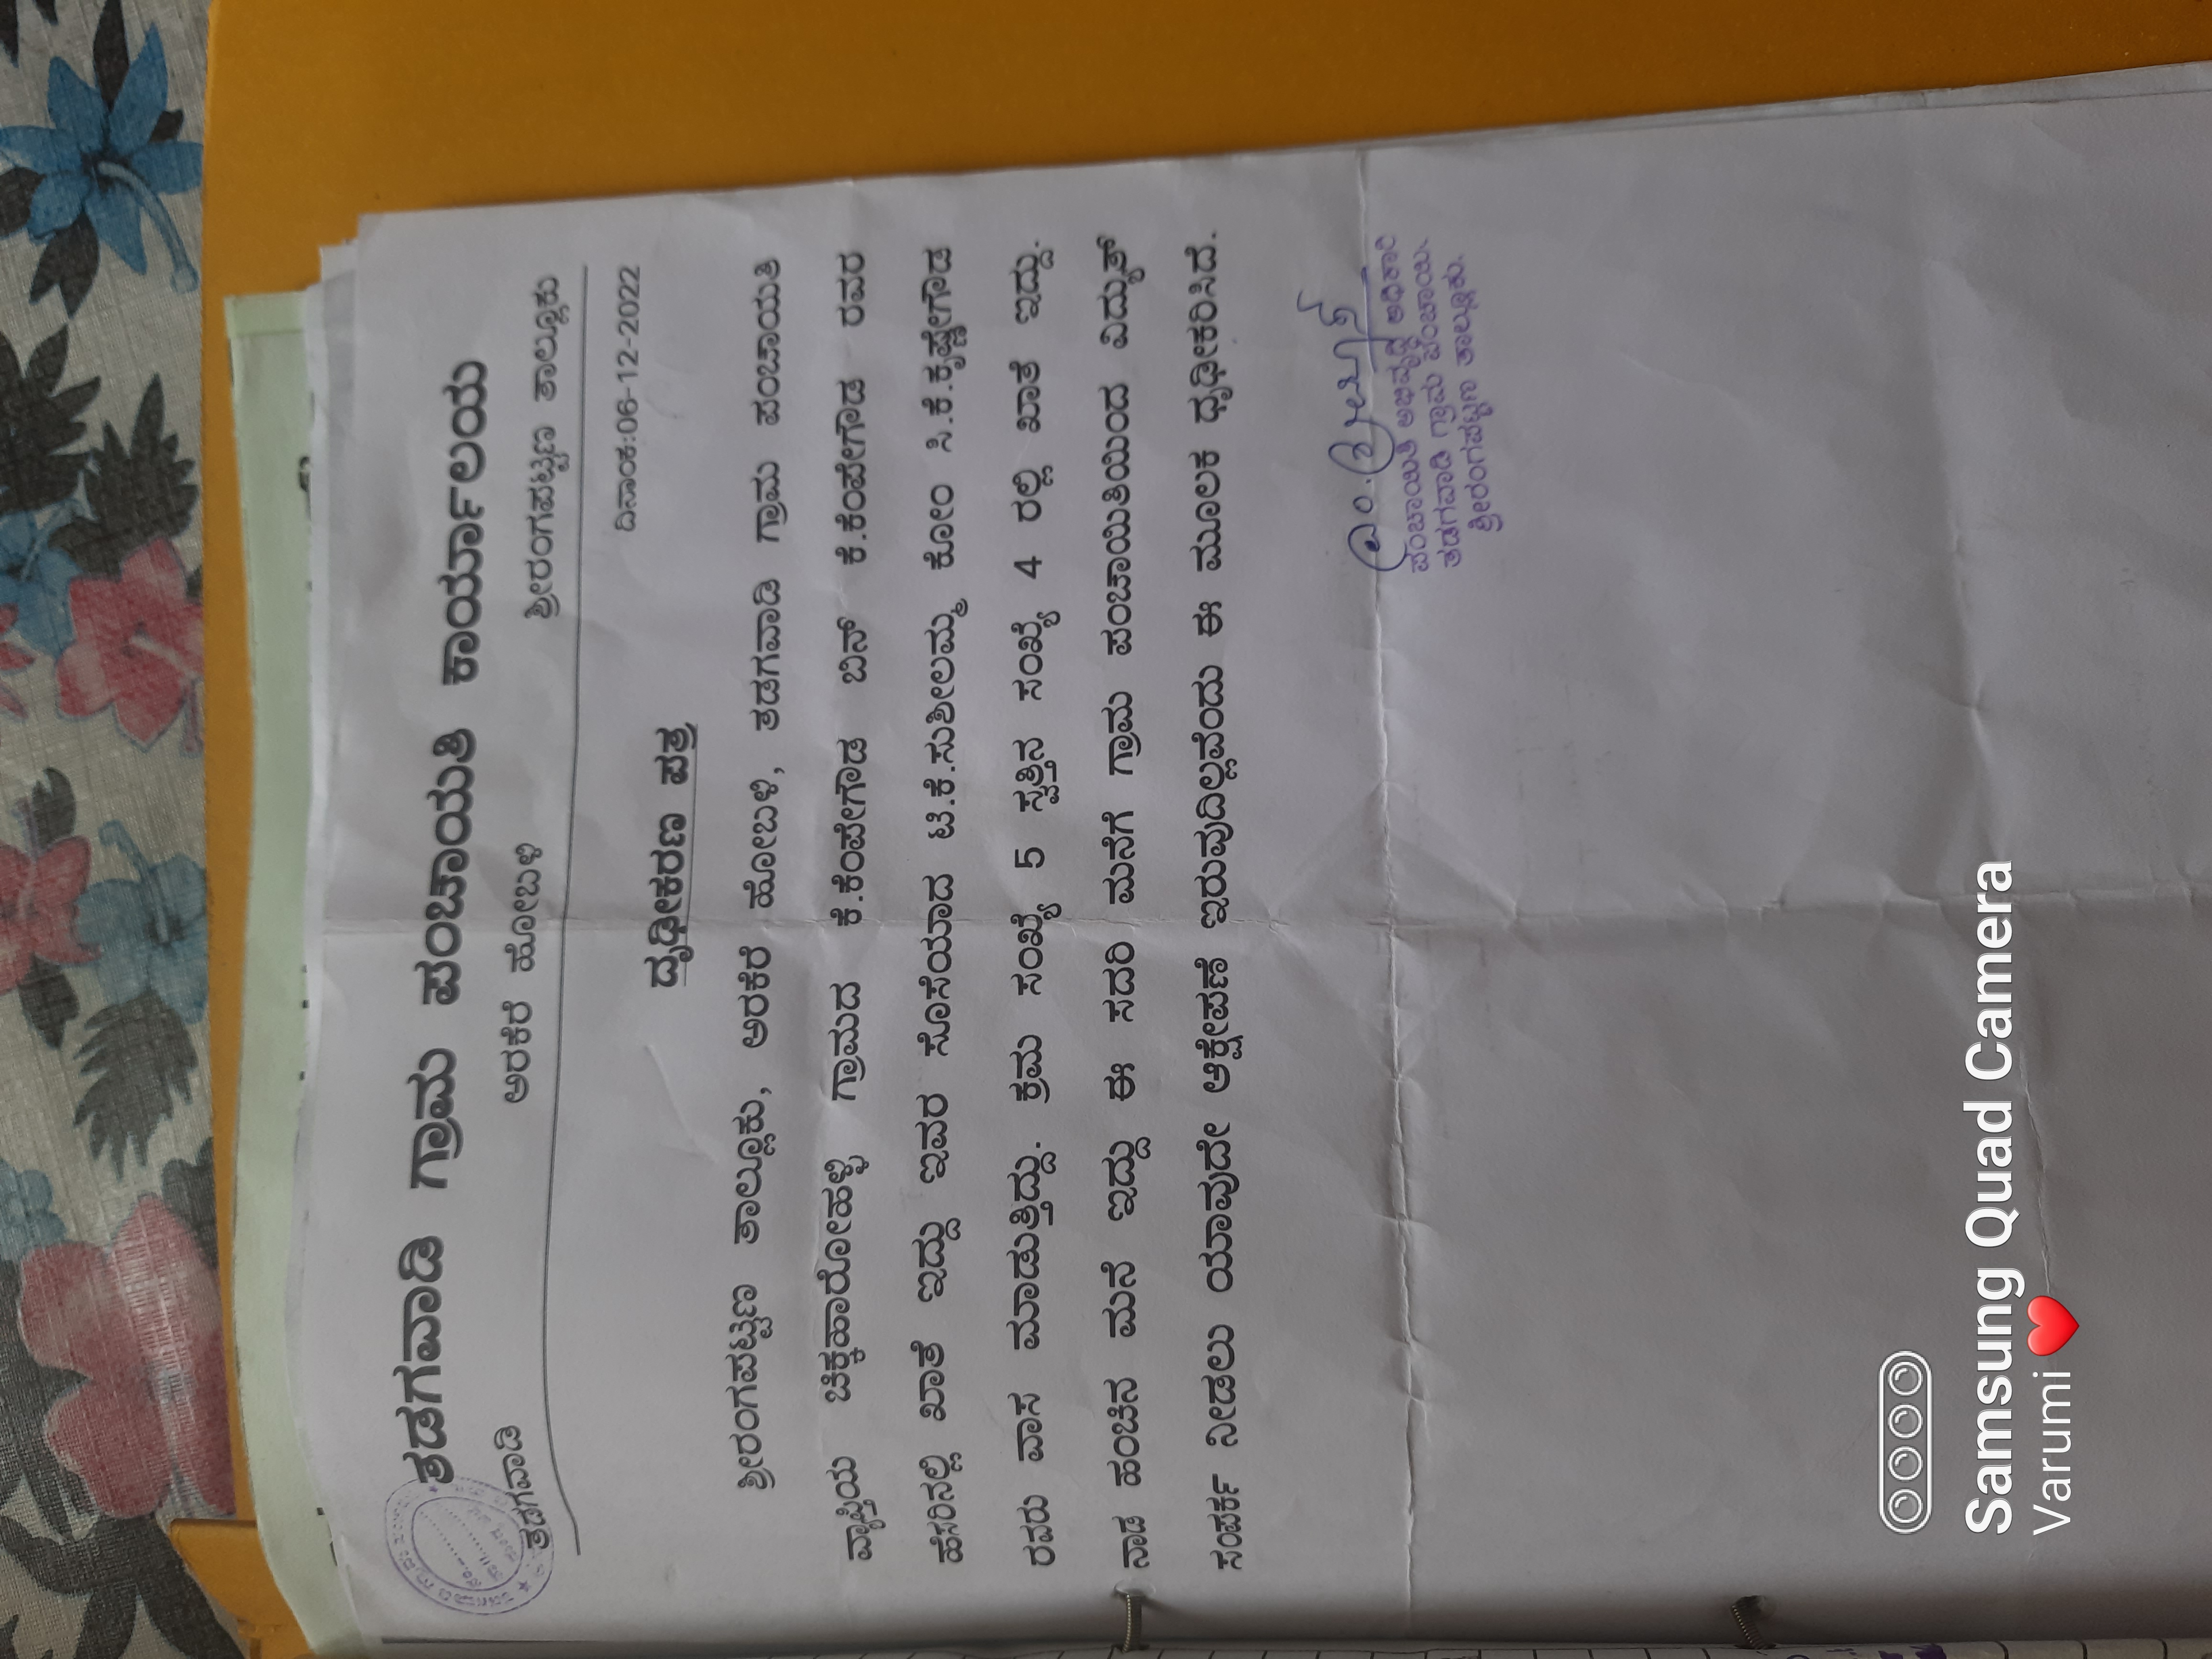 ತಡಗವಾಡಿ ಗ್ರಾಮ ಪಂಚಾಯತಿ ಕಾರ್ಯಾಲಯ
ತಡಗವಾಡಿ ಅರಕೆರೆ ಹೋಬಳಿ ಶ್ರೀರಂಗಪಟ್ಟಣ ತಾಲ್ಲೂಕು
ದಿನಾಂಕ:06-12-2022
ದೃಢೀಕರಣ ಪತ್ರ
ಶ್ರೀರಂಗಪಟ್ಟಣ ತಾಲ್ಲೂಕು, ಅರಕೆರೆ ಹೋಬಳಿ, ತಡಗವಾಡಿ ಗ್ರಾಮ ಪಂಚಾಯತಿ
ವ್ಯಾಪ್ತಿಯ ಚಿಕ್ಕಹಾರೋಹಳ್ಳಿ ಗ್ರಾಮದ ಕೆ.ಕೆಂಪೇಗೌಡ ಬಿನ್ ಕೆ.ಕೆಂಪೇಗೌಡ ರವರ
ಹೆಸರಿನಲ್ಲಿ ಖಾತೆ ಇದ್ದು ಇವರ ಸೊಸೆಯಾದ ಟಿ.ಕೆ.ಸುಶೀಲಮ್ಮ ಕೋಂ ಸಿ.ಕೆ.ಕೃಷ್ಣೇಗೌಡ
ರವರು ವಾಸ ಮಾಡುತ್ತಿದ್ದು. ಕ್ರಮ ಸಂಖ್ಯೆ 5 ಸ್ವತ್ತಿನ ಸಂಖ್ಯೆ 4 ರಲ್ಲಿ ಖಾತೆ ಇದ್ದು.
ನಾಡ ಹಂಚಿನ ಮನೆ ಇದ್ದು ಈ ಸದರಿ ಮನೆಗೆ ಗ್ರಾಮ ಪಂಚಾಯಿತಿಯಿಂದ ವಿದ್ಯುತ್
ಸಂಪರ್ಕ ನೀಡಲು ಯಾವುದೇ ಆಕ್ಷೇಪಣೆ ಇರುವುದಿಲ್ಲವೆಂದು ಈ ಮೂಲಕ ಧೃಢೀಕರಿಸಿದೆ.
ಪಂಚಾಯಿತಿ ಅಭಿವೃದ್ಧಿ ಅಧಿಕಾರಿ
ತಡಗವಾಡಿ ಗ್ರಾಮ ಪಂಚಾಯಿ
ಶ್ರೀರಂಗಪಟ್ಟಣ ತಾಲ್ಲೂಕು.
Samsung Quad Camera
Varumi ❤️